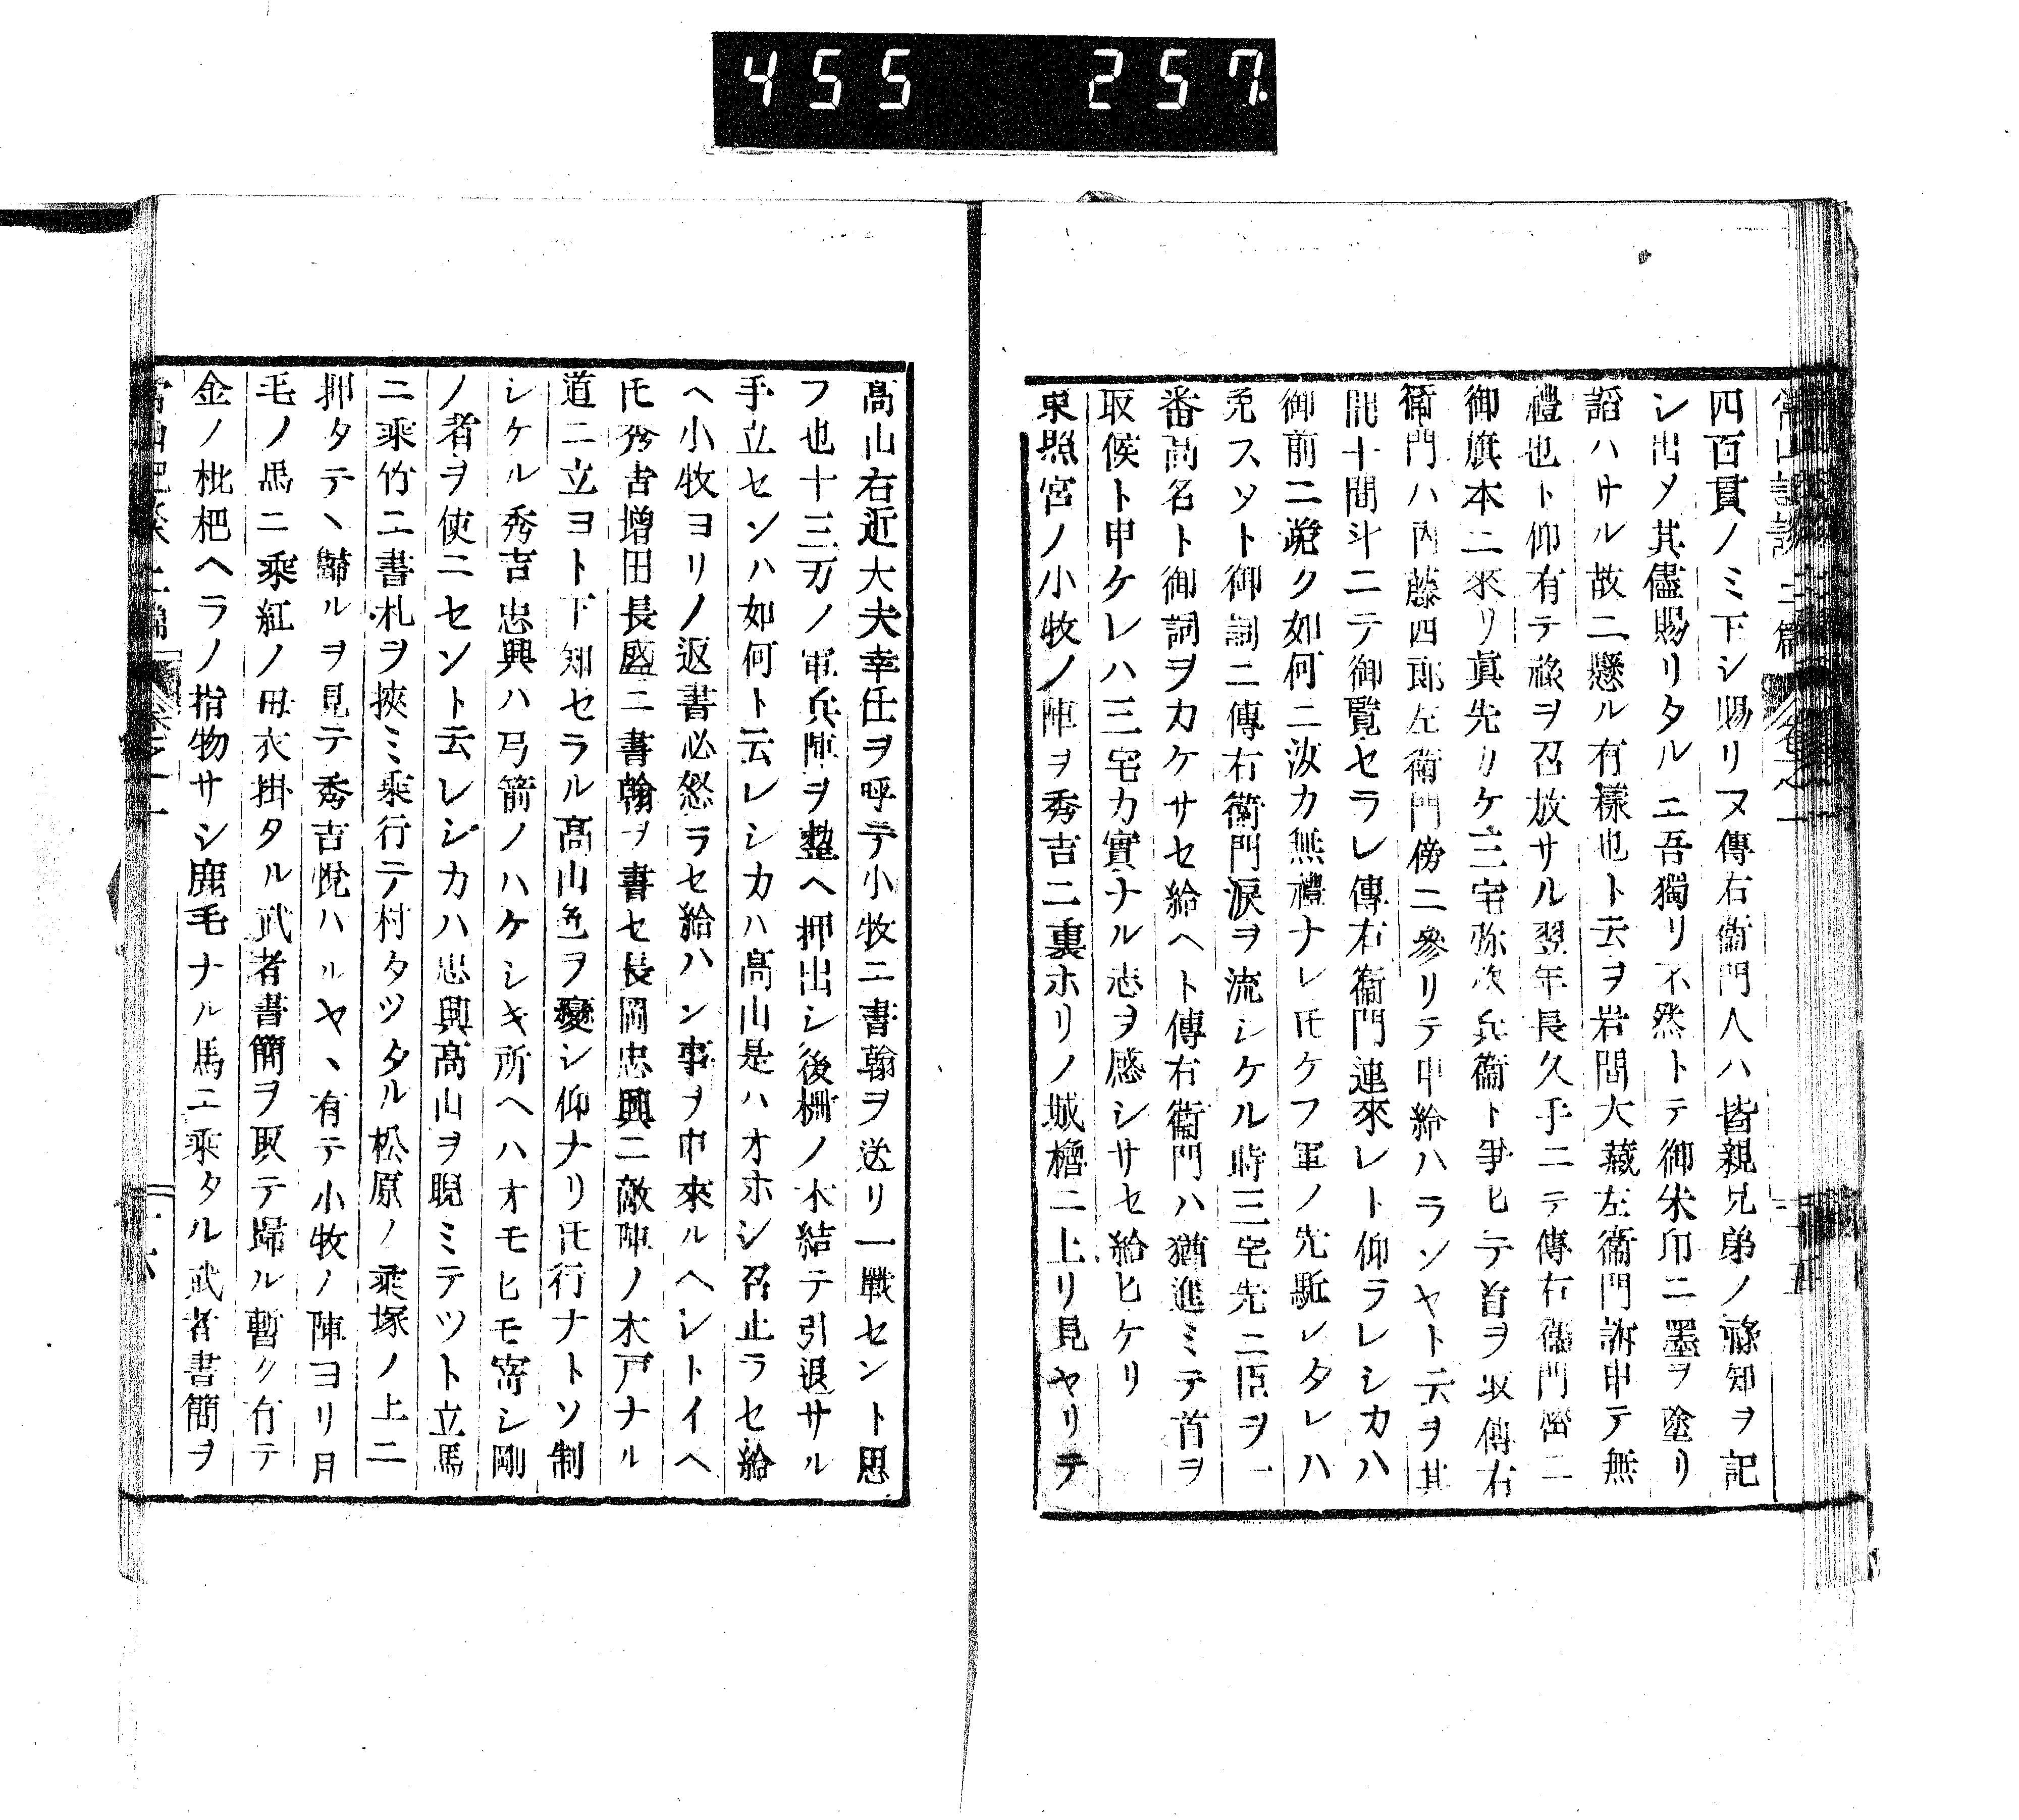 455 257
四百貫ノミ下シ賜リヌ傳右衞門人ハ皆親兄弟ノ祿知ヲ記
シ出ソ其儘賜リタルニ吾獨リ不然トテ御朱印ニ墨ヲ塗リ
謟ハサル故ニ懸ル有樣也ト云ヲ岩間大藏左衞門訴申テ無
禮也ト仰有テ祿ヲ召放サル翌年長久手ニテ傳右衞門密ニ
御旗本ニ來リ眞先カケ三宅弥次兵衞ト爭ヒテ首ヲ取傳右
衞門ハ內藤四郞左衞門傍ニ參リテ申給ハランヤト云ヲ其
間十間斗ニテ御覽セラレ傳右衞門連來レト仰ラレシカハ
御前ニ跪ク如何ニ汝カ無禮ナレ𪜈ケフ軍ノ先駈レタレハ
免スソト御詞ニ傳右衞門涙ヲ流シケル時三宅先ニ臣ヲ一
番高名ト御詞ヲカケサセ給ヘト傳右衞門ハ猶進ミテ首ヲ
取候ト申ケレハ三宅カ實ナル志ヲ感シサセ給ヒケリ
東照宮ノ小牧ノ陣ヲ秀吉二裏ホリノ城櫓ニ上リ見ヤリテ
髙山右近大夫幸任ヲ呼テ小牧ニ書翰ヲ送リ一戰セント思
フ也十三万ノ軍兵陣ヲ整ヘ押出シ後柵ノ木結テ引退サル
手立センハ如何ト云レシカハ髙山是ハオホシ召止ラセ給
ヘ小牧ヨリノ返書必怒ラセ給ハン事ヲ申來ルヘシトイヘ
𪜈秀吉增田長盛ニ書翰ヲ書セ長岡忠興ニ敵陣ノ木戸ナル
道ニ立ヨト下知セラル髙山色ヲ變シ仰ナリ𪜈行ナトソ制
シケル秀吉忠興ハ弓箭ノハケシキ所ヘハオモヒモ寄シ剛
ノ者ヲ使ニセント云レシカハ忠興髙山ヲ睨ミテツト立馬
ニ乘竹ニ書札ヲ挾ミ乘行テ村タツタル松原ノ乘塚ノ上ニ
押タテヽ歸ルヲ見テ秀吉悅ハルヤヽ有テ小牧ノ陣ヨリ月
毛ノ馬ニ乘紅ノ母衣掛タル武者書簡ヲ取テ歸ル暫ク有テ
金ノ枇杷ヘラノ指物サシ鹿毛ナル馬ニ乘タル武者書簡ヲ